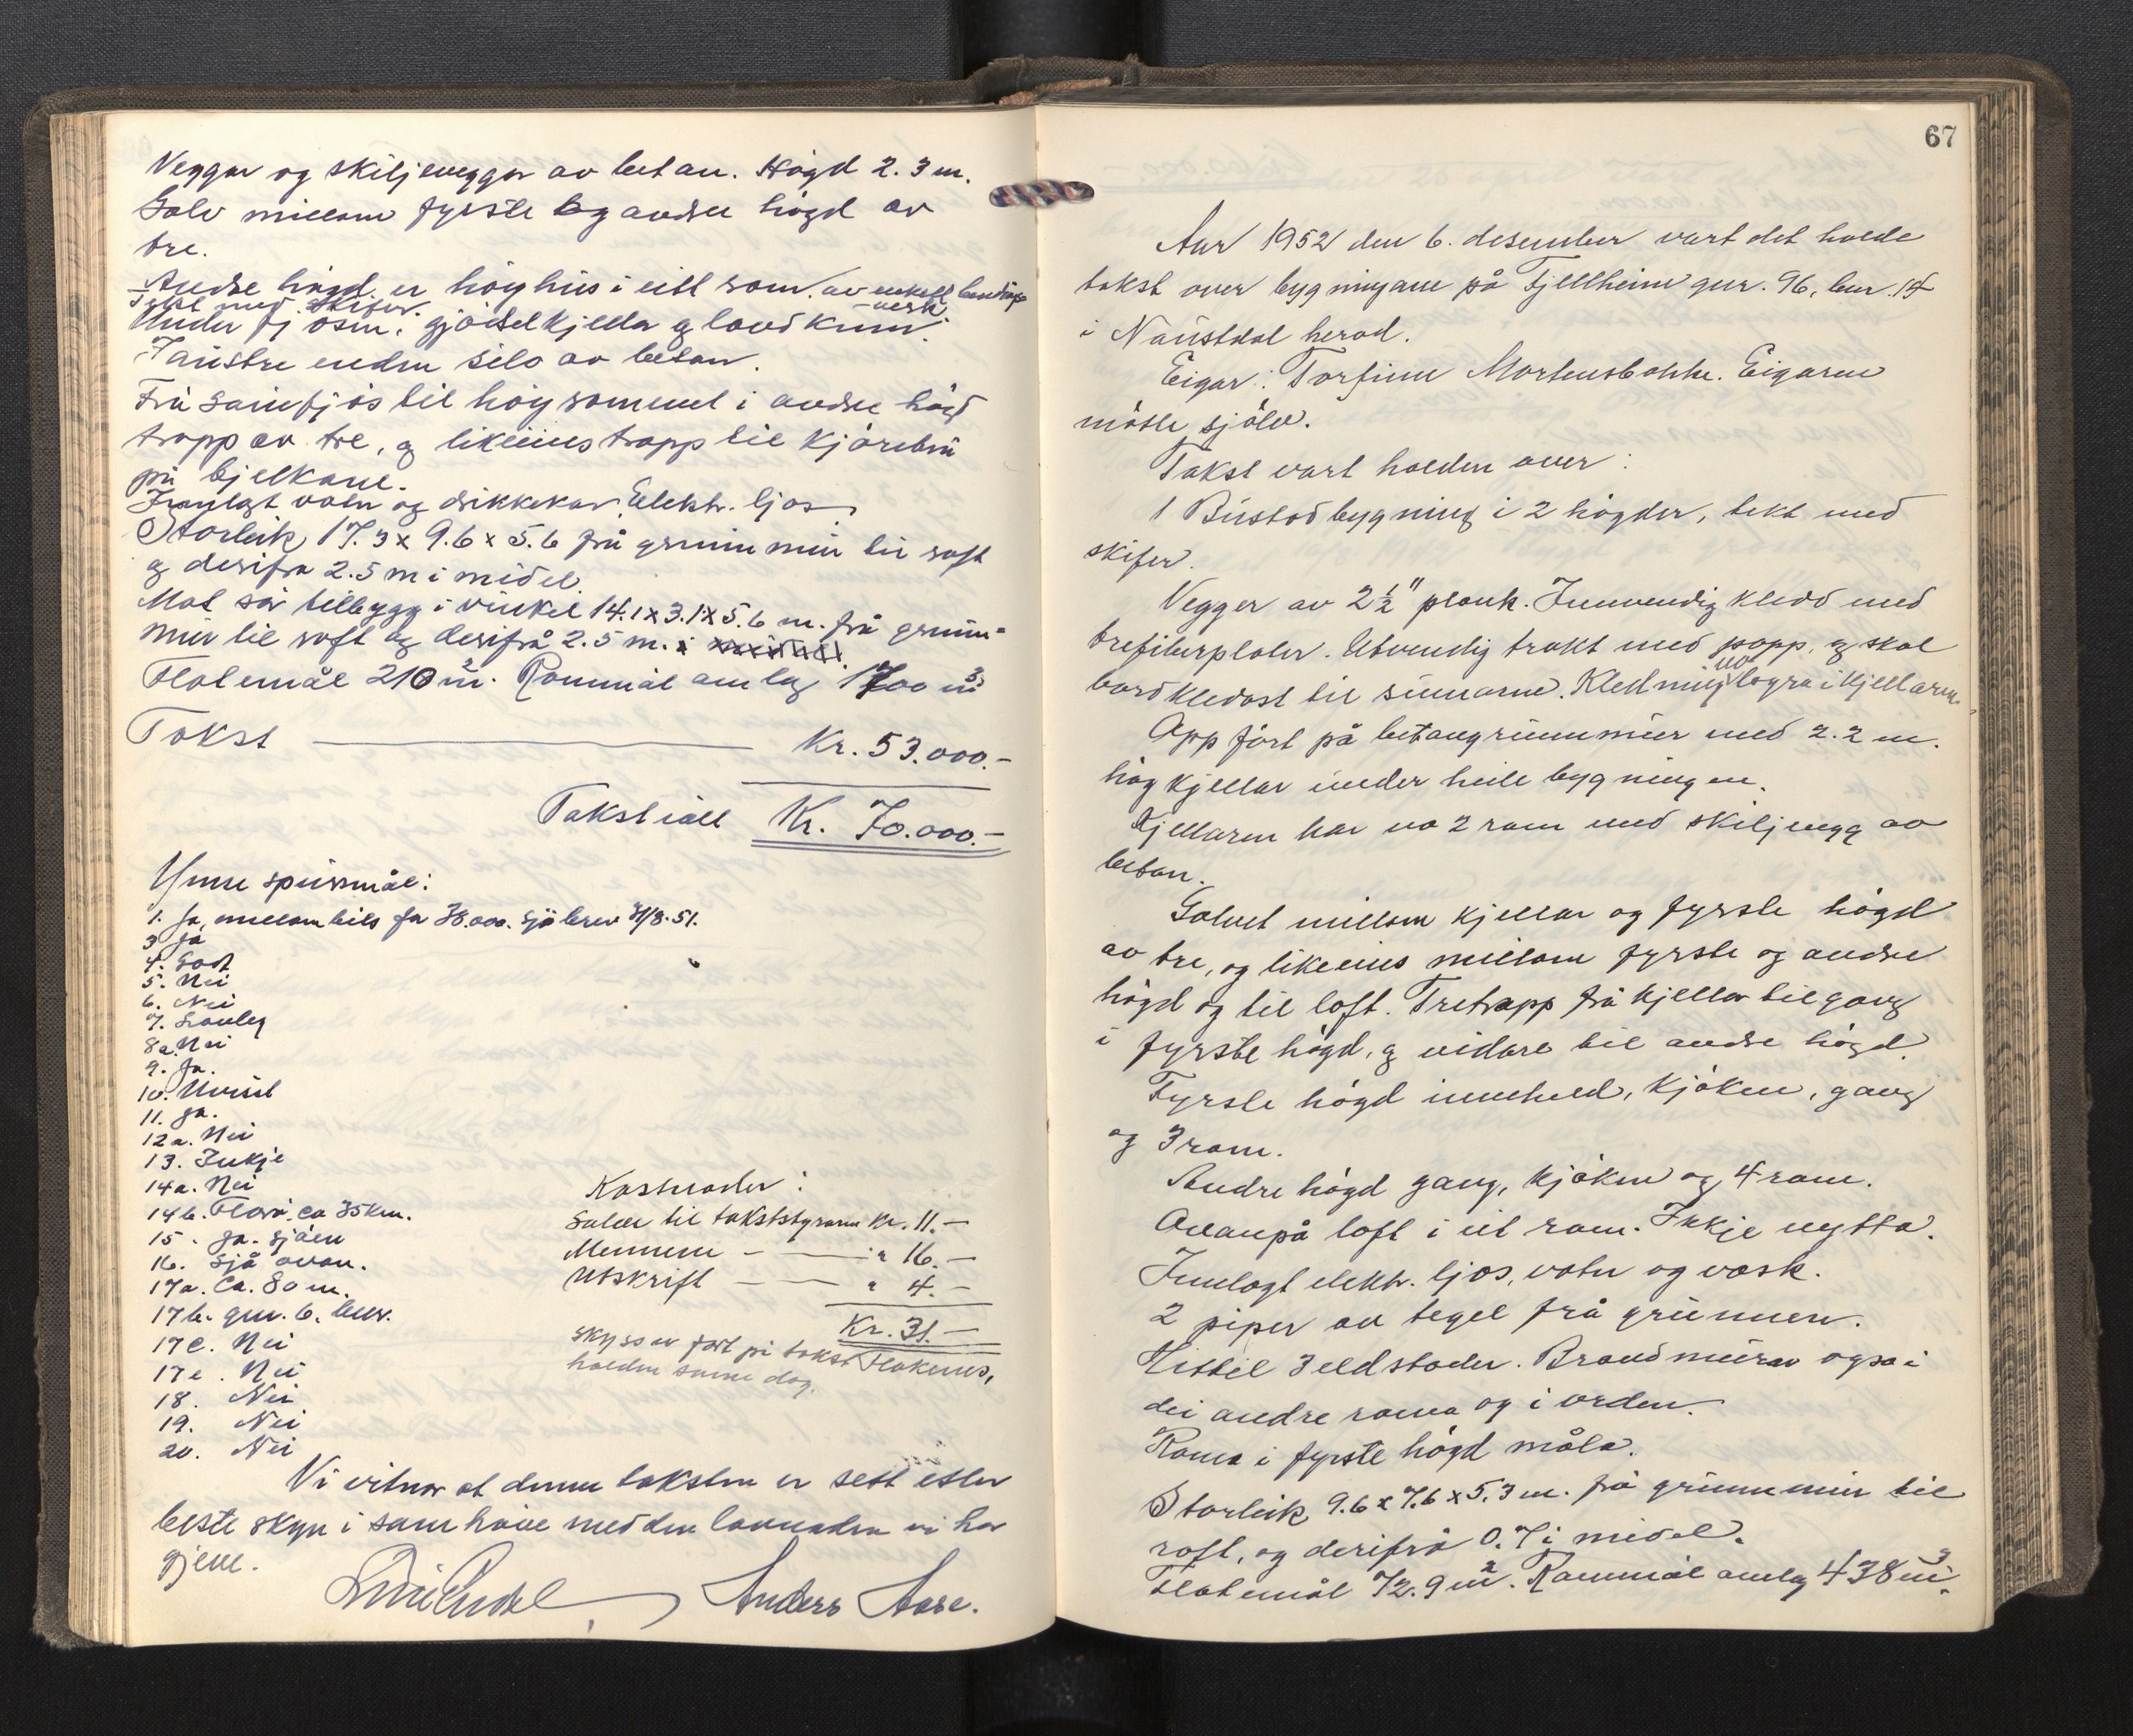 Veggar og skiljeveggar av betan. Högd 2.3 m.
Golv millom fyrste og andre högd av
tre.
Andre högd er höyhus i eitt rom. av enkelt bindings
verk.
Tekt med skifer.
Under fjösen. gjödselkjellar og landkum.
I austre enden silo av betan.
Frå sauefjös til höyrommet i andre högd
trapp av tre, og likeeins trapp til kjörebru
på bjelkane.
Innlagt vatn og drikkekar. Elektr. ljos.
Storleik 17.3 x 9.6 x 5.6 frå grunnmur til raft
og derifrå 2.5 m i midel.
Mot sör tilbygg i vinkel 14.1 x 3.1 x 5.6 m. frå grunn-
mur til raft og derifrå 2.5 m.
Flatemål 210 m². Rommål omlag 1700 m³
Takst Kr. 53.000.-
Takst i alt Kr. 70.000.-
Ymse spursmål:
1. Ja, mellombils for 38.000. Sjå brev 31/8-51.
3 Ja
4. Godt
5. Nei
6. Nei
7. Lovleg
8a. Nei
9. Ja.
10. Uvisst
11. Ja.
12a. Nei
13. Inkje
14a. Nei
14b. Florö. ca 35 km.
15. Ja. Sjöen
16. Sjå ovan.
17a. Ca. 80 m.
17b. gnr. 6. bnr.
17c. Nei
17e. Nei
18. Nei
19. Nei
20. Nei
Kostnader:
Salær til takststyraren Kr. 11.-
Mennene - " 16.-
Utskrift - " 4.-
Kr. 31.-
Skyss er fört på takst Flokenes,
halden same dag.
Vi vitnar at denne taksten er sett etter
beste skyn i samhöve med den lovnaden vi har
gjeve.
Anders Aase.
67
Aar 1952 den 6. desember vart det halde
takst over bygningane på Fjellheim gnr. 96, bnr. 14
i Naustdal herad.
Eigar: Torfinn Mortensbakke. Eigaren
mötte sjölv.
Takst vart halden over:
1 Bustadbygning i 2 högder, tekt med
skifer.
Vegger av 2½" plank. Innvendig kledd med
trefiberplater. Utvendig trekt med papp, og skal
bordkledast til sumaren. Kledning no lagra i kjellaren.
Oppfört på betangrunnmur med 2.2 m.
hög kjellar under heile bygningen.
Kjellaren har no 2 rom med skiljevegg av
betan.
Golvet millom kjellar og fyrste högd
av tre, og likeeins millom fyrste og andre
högd og til loft. Tretrapp frå kjellar til gang
i fyrste högd, og vidare til andre högd.
Fyrste högd inneheld, kjöken, gang
og 3 rom.
Andre högd gang, kjöken og 4 rom.
Ovanpå loft i eit rom. Ikkje nytta.
Innlagt elektr. ljos, vatn og vask.
2 piper av tegel frå grunnen.
Hittil 3 eldstader. Brandmurar også i
dei andre roma og i orden.
Roma i fyrste högd måla.
Storleik 9.6 x 7.6 x 5.3 m. frå grunnmur til
raft, og derifrå 0.7 i midel.
Flatemål 72.9 m². Rommål omlag 438 m³.